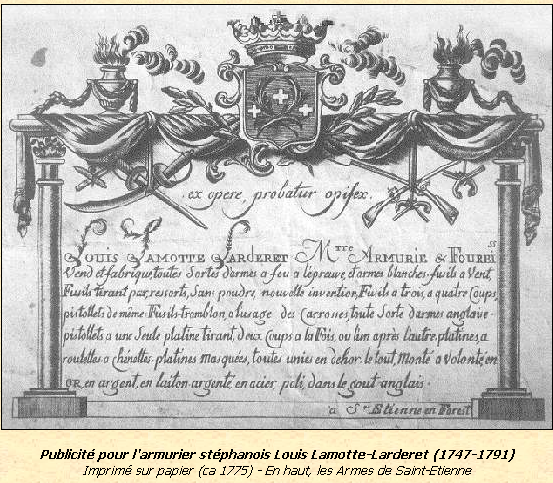 ex opere, probatur opifex.
Louis Lamotte Larderet Mtre Armurie & Fourbiss
Vend et fabrique, toutes Sortes d'armes a feu a lépreuve, d'armes blanches, fusils a Vent,
Fusils tirant par ressorts, Sans poudre, nouvelle invention, Fusils a trois, a quatre Coups,
pistollets de même. Fusils tromblon, a lusage des Carrosses, toute Sorte d'armes anglaise
pistollets a une Seule platine tirant, deux coups a la Fois, ou l'un après l'autre, platines, a
roulettes a chinottes platines masquées, toutes unies en dehor. le tout, Monté a Volonté, en
OR, en argent, en laiton argenté, en acier poli, dans le gout anglais.
a St Etienne en Forest
Publicité pour l'armurier stéphanois Louis Lamotte-Larderet (1747-1791)
Imprimé sur papier (ca 1775) - En haut, les Armes de Saint-Etienne